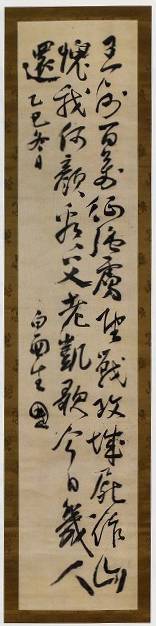 王師百萬征強虜野戰攻城屍作山
愧我何顔看父老凱歌今日幾人
還 乙巳冬日